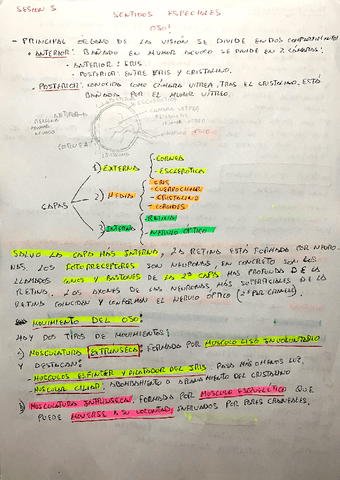 SESION 5
SENTIDOS ESPECIALES
OJO:
- PRINCIPAL ÓRGANO DE LA VISIÓN SE DIVIDE EN DOS COMPARTIMENTOS
• ANTERIOR: BAÑADO EN HUMOR ACUOSO SE DIVIDE EN 2 CÁMARAS:
- ANTERIOR: IRIS
- POSTERIOR: ENTRE IRIS Y CRISTALINO.
• POSTERIOR: CONOCIDA COMO CÁMARA VÍTREA, TRAS EL CRISTALINO, ESTÁ
BAÑADA POR EL HUMOR VÍTREO.
ESCLERÓTICA
ANTERIOR
CÁMARA VITREA
HUMOR VITREO
CORNEA
CAPAS
1) EXTERNA
- CORNEA
- ESCLEROTICA
2) MEDIA
- IRIS
- CUERPO CILIAR
- CRISTALINO
- COROIDES
3) INTERNA
- RETINA
- NERVIO ÓPTICO
LA CAPA MÁS INTERNA, LA RETINA ESTÁ FORMADA POR NEURO-
NAS. LOS FOTORECEPTORES SON NEURONAS, EN CONCRETO SON LOS
LLAMADOS CONOS Y BASTONES DE LA 2ª CAPA MAS PROFUNDA DE LA
RETINA. LOS AXONES DE LAS NEURONAS MÁS SUPERFICIALES DE LA
RETINA COINCIDEN Y CONFORMAN EL NERVIO ÓPTICO (2º PAR CRANEAL).
MOVIMIENTO DEL OJO:
HAY DOS TIPOS DE MOVIMIENTOS:
1) MUSCULATURA EXTRINSECA: FORMADA POR MUSCULO LISO INVOLUNTARIO
Y DESTACAN:
- MUSCULOS ESFINTER Y DILATADOR DEL IRIS. PASA MÁS O MENOS LUZ.
- MUSCULAR CILIAR, ABOMBAMIENTO O APLANAMIENTO DEL CRISTALINO
2) MUSCULATURA INTRINSECA: FORMADA POR MUSCULO ESQUELÉTICO QUE
PUEDE MOVERSE A SU VOLUNTAD, INERVADOS POR PARES CRANEALES.